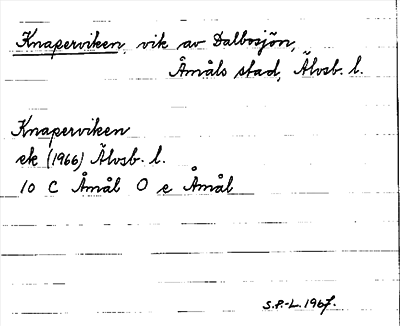 Knaperviken, vik av Dalbosjön,
Åmåls stad, Älvsb. l.
Knaperviken
ek (1966) Älvsb. l.
10 C Åmål O e Åmål
S.P.-L. 1967.